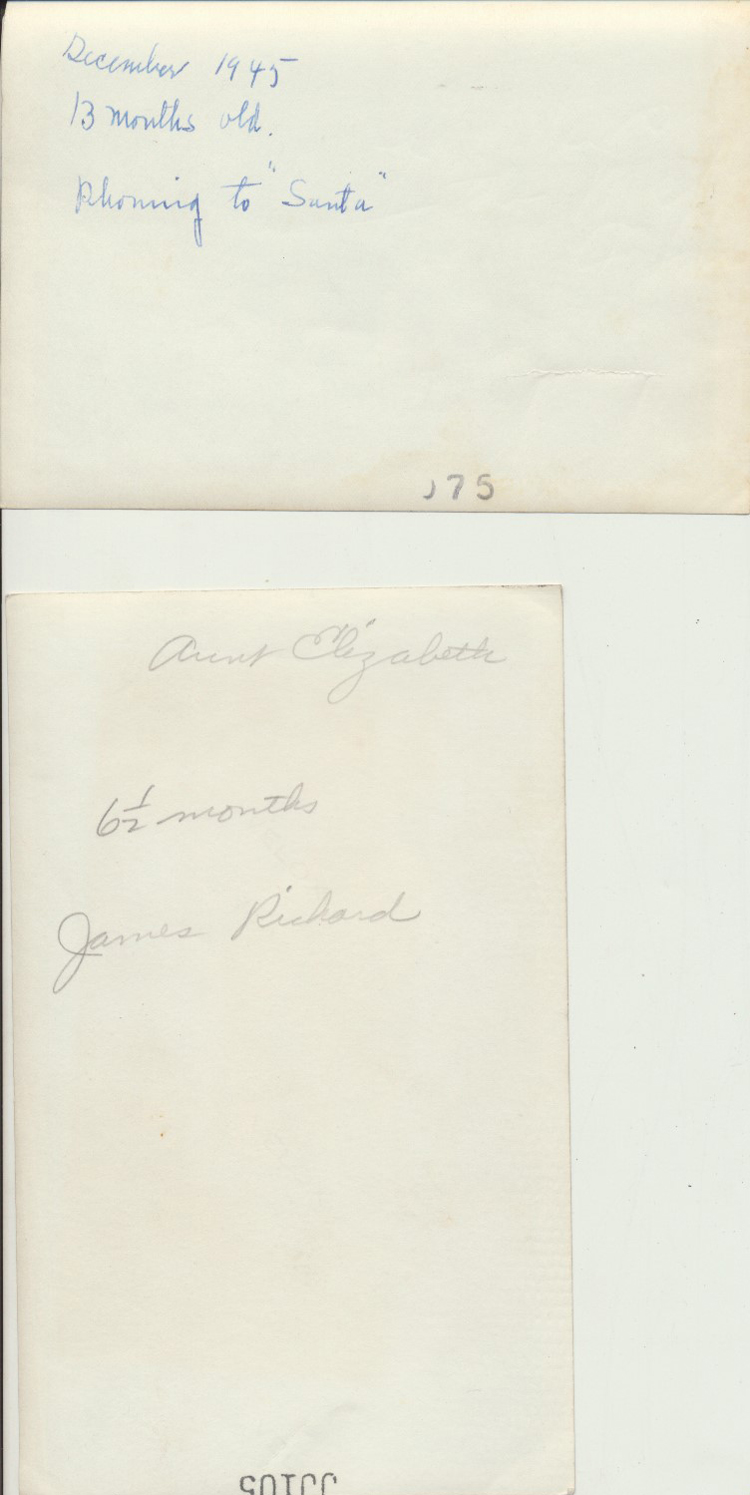 December 1945
13 months old.
Phoning to "Santa"
J75
Aunt Elizabeth
6½ months
James Richard
JJ105